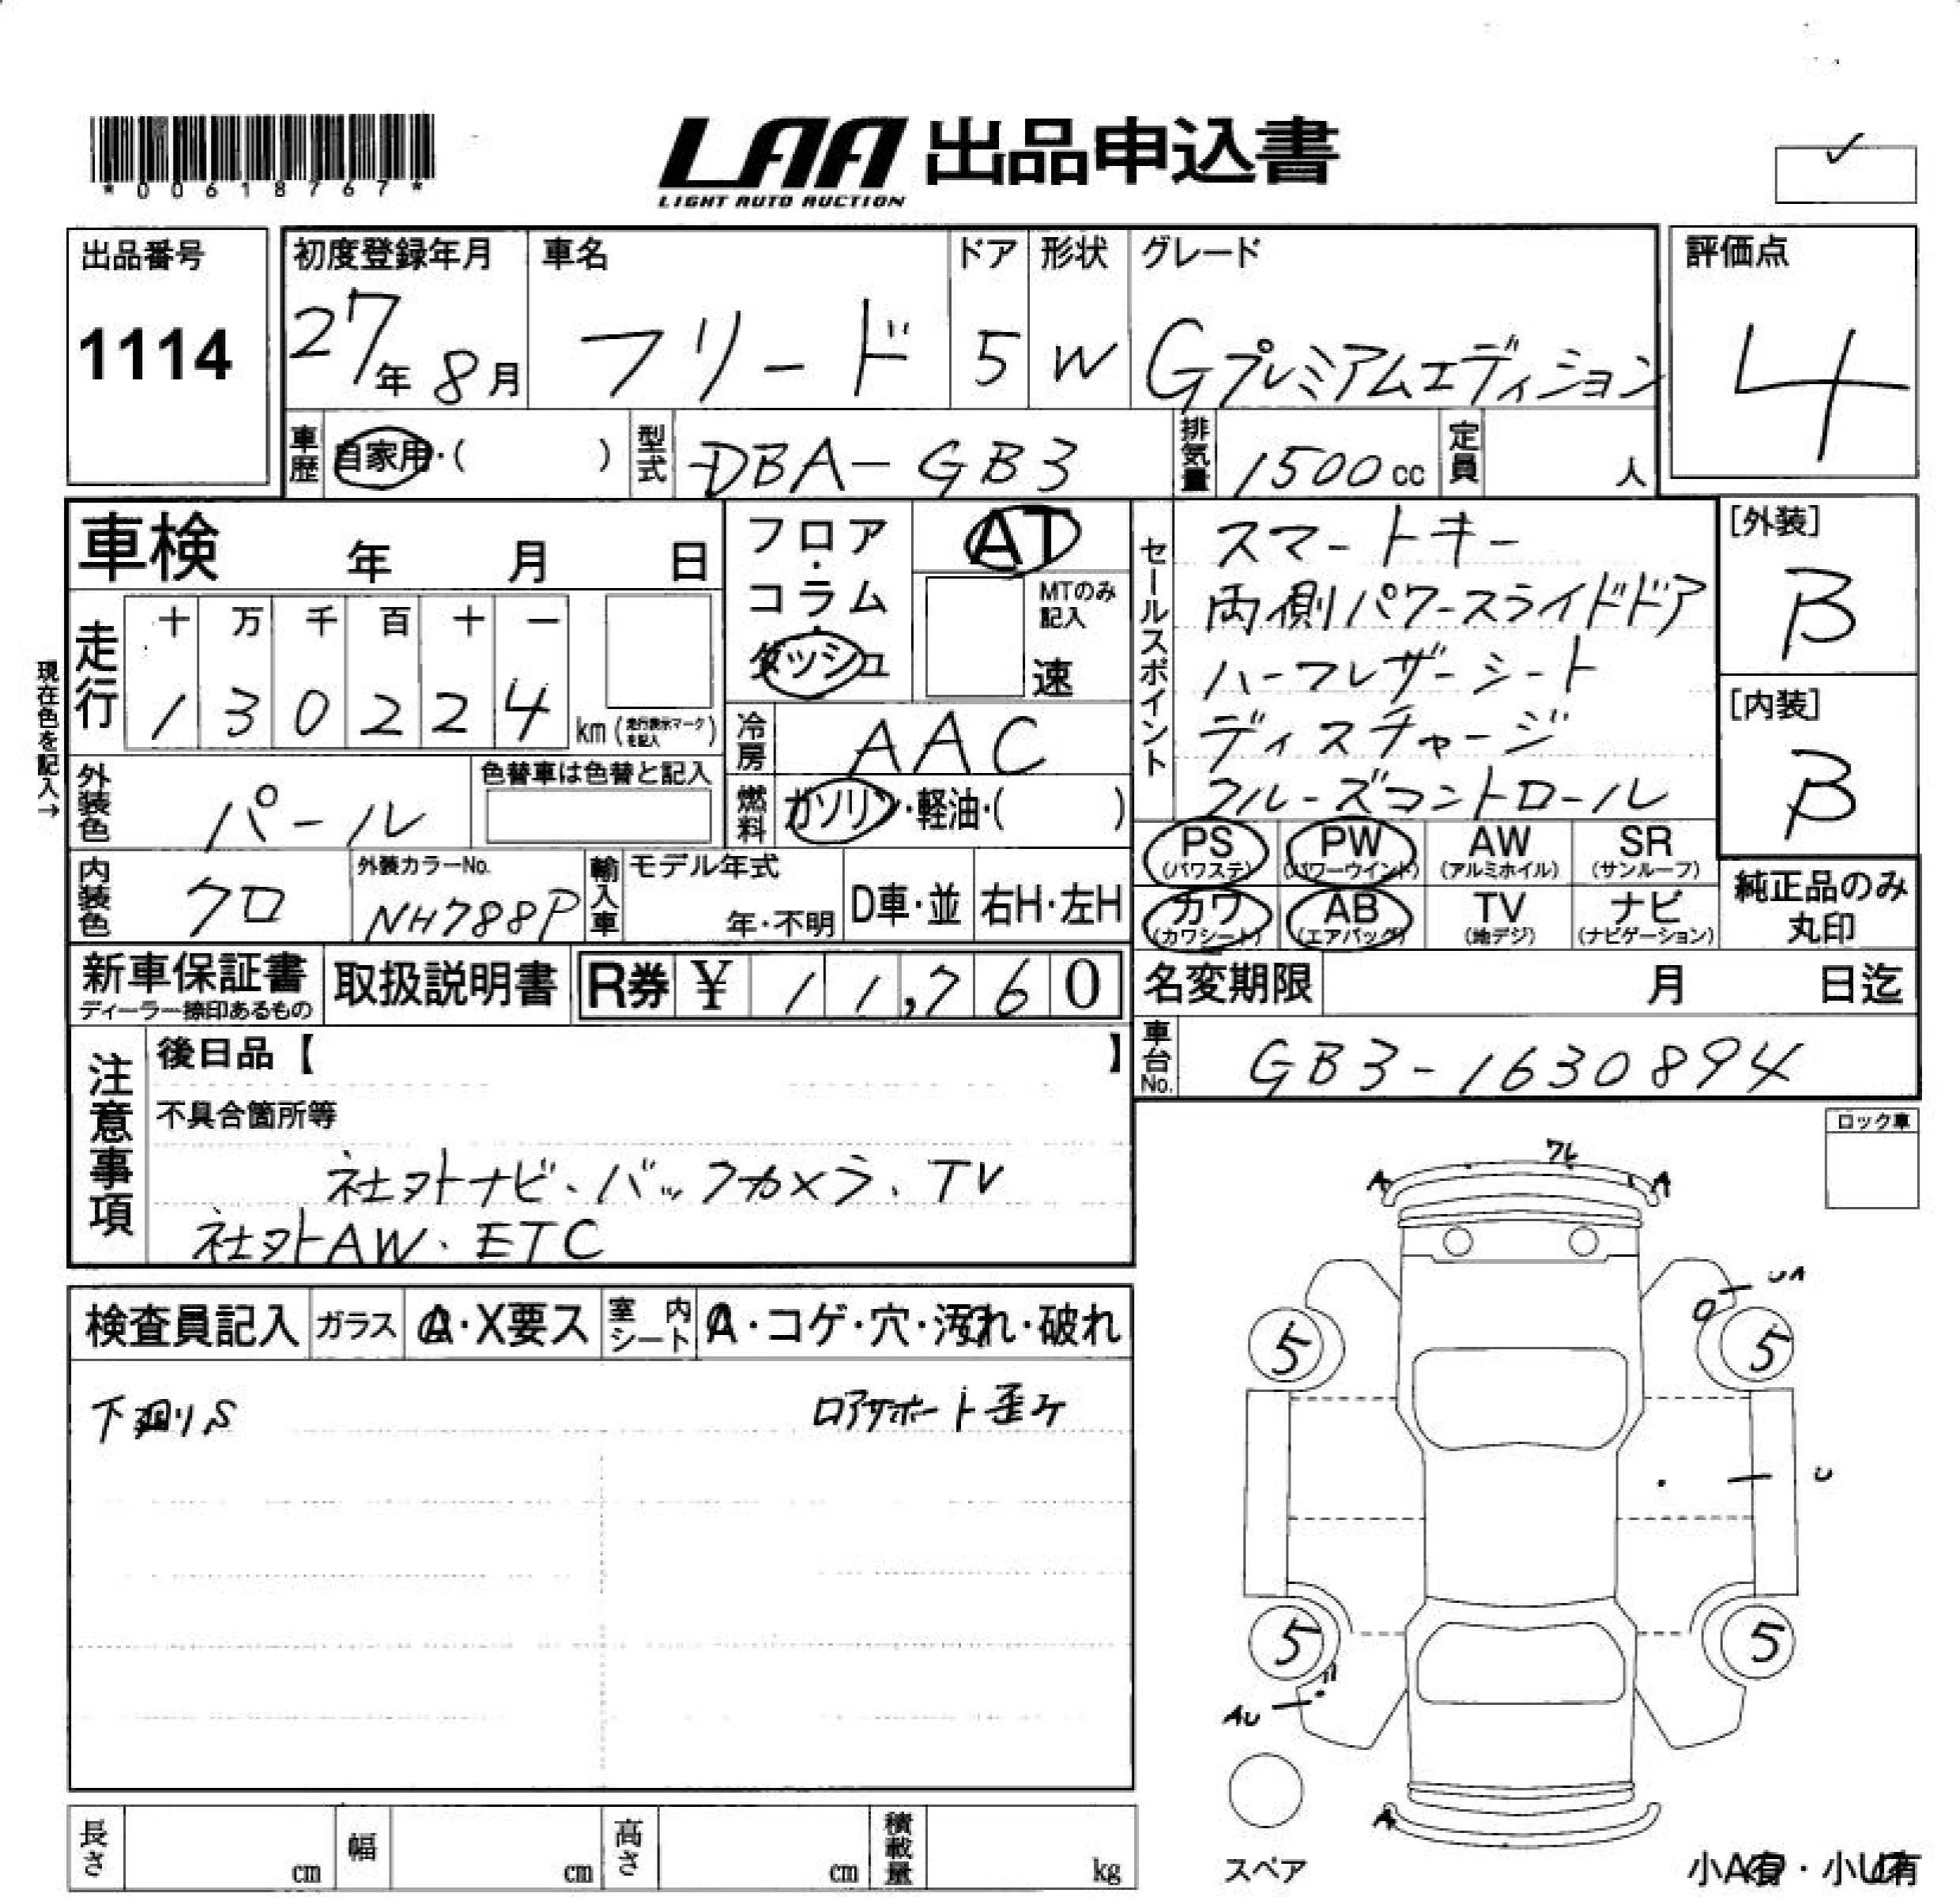 *00618767*
LAA 出品申込書
LIGHT AUTO AUCTION
出品番号
1114
初度登録年月
27年 8月
車名
フリード
ドア
5
形状
W
グレード
Gプレミアムエディション
評価点
4
車歴 自家用・( )
型式 DBA-GB3
排気量 1500cc
定員 人
車検 年 月 日
フロア・コラム・ダッシュ
AT
MTのみ記入
速
現在色を記入→
走行
十 万 千 百 十 一
1 3 0 2 2 4 km(走行表示マークを記入)
冷房 AAC
燃料 ガソリン・軽油・( )
外装色 パール
色替車は色替と記入
内装色 クロ
外装カラーNo.
NH788P
輸入車
モデル年式
年・不明
D車・並
右H・左H
セールスポイント
スマートキー
両側パワースライドドア
ハーフレザーシート
ディスチャージ
クルーズコントロール
[外装]
B
[内装]
B
PS (パワステ)
PW (パワーウインド)
AW (アルミホイル)
SR (サンルーフ)
カワ (カワシート)
AB (エアバッグ)
TV (地デジ)
ナビ (ナビゲーション)
純正品のみ丸印
新車保証書
ディーラー捺印あるもの
取扱説明書
R券 ¥ 11,760
名変期限 月 日迄
車台No. GB3-1630894
注意事項
後日品【 】
不具合箇所等
社外ナビ、バックカメラ、TV
社外AW、ETC
ロック車
検査員記入
ガラス A・X要ス
室内シート A・コゲ・穴・汚れ・破れ
下廻りS
ロアサポート歪ケ
フレ
A
A
UA
5
5
U
5
5
AU
A
スペア
小A有・小U有
長さ cm
幅 cm
高さ cm
積載量 kg